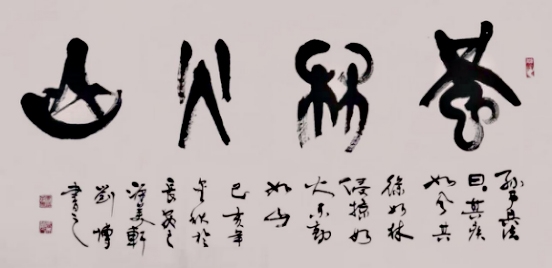 風林火山
孫子兵法
曰其疾
如风其
徐如林
侵掠如
火不動
如山
己亥年
金秋於
長安之
美軒
劉博
書之